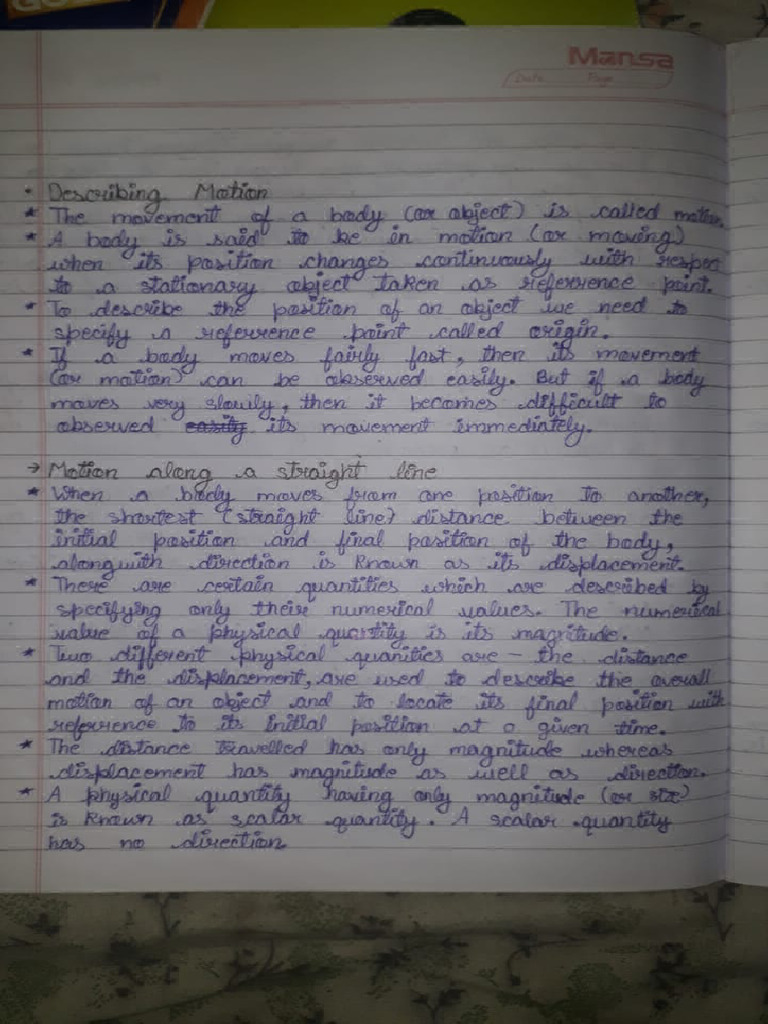 GO
Mansa
Date Page
• Describing Motion
* The movement of a body (or object) is called motion.
* A body is said to be in motion (or moving)
when its position changes continuously with respec
to a stationary object taken as referrence point.
* To describe the position of an object we need to
specify a referrence point called origin.
* If a body moves fairly fast, then its movement
(or motion) can be observed easily. But if a body
moves very slowily, then it becomes difficult to
observed easily its movement immediately.
→ Motion along a straight line
* When a body moves from one position to another,
the shortest (straight line) distance between the
initial position and final position of the body,
alongwith direction is known as its displacement.
* There are certain quantities which are described by
specifying only their numerical values. The numerical
value of a physical quantity is its magnitude.
* Two different physical quanities are - the distance
and the displacement, are used to describe the overall
motion of an object and to locate its final position with
referrence to its initial position at a given time.
* The distance travelled has only magnitude whereas
displacement has magnitude as well as direction.
* A physical quantity having only magnitude (or size)
is known as scalar quantity. A scalar quantity
has no direction